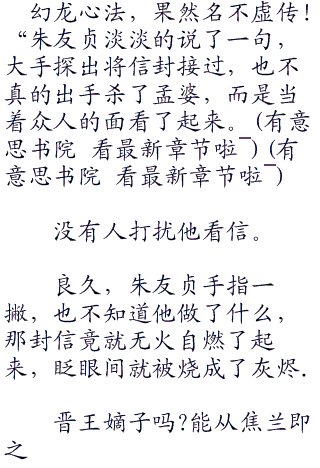 幻龙心法，果然名不虚传!
“朱友贞淡淡的说了一句，
大手探出将信封接过，也不
真的出手杀了孟婆，而是当
着众人的面看了起来。(有意
思书院 看最新章节啦¯) (有
意思书院 看最新章节啦¯)
没有人打扰他看信。
良久，朱友贞手指一
撇，也不知道他做了什么，
那封信竟就无火自燃了起
来，眨眼间就被烧成了灰烬.
晋王嫡子吗?能从焦兰即
之